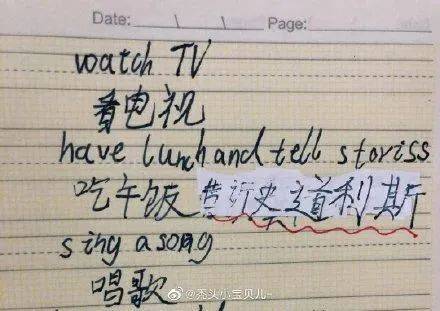 Date: Page:
watch TV
看电视
have lunch and tell storiss
吃午饭 道利斯
sing a song
唱歌
@秃头小宝贝儿-